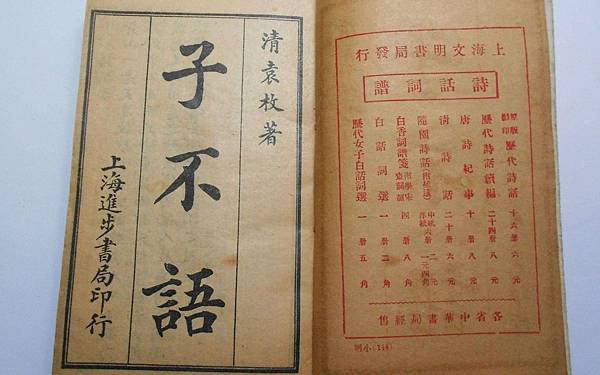 清袁枚著
子不語
上海進步書局印行
上海文明書局發行
詩話詞譜
原版影印 歷代詩話 十六册 六元
歷代詩話續編 二十四册 八元
唐詩紀事 十册 八元
清詩話 二十册 六元
隨園詩話
白香詞譜箋 四册 八角
白話詞選 一册 二角
歷代女子白話詞選 一册 五角
各省中華書局經售